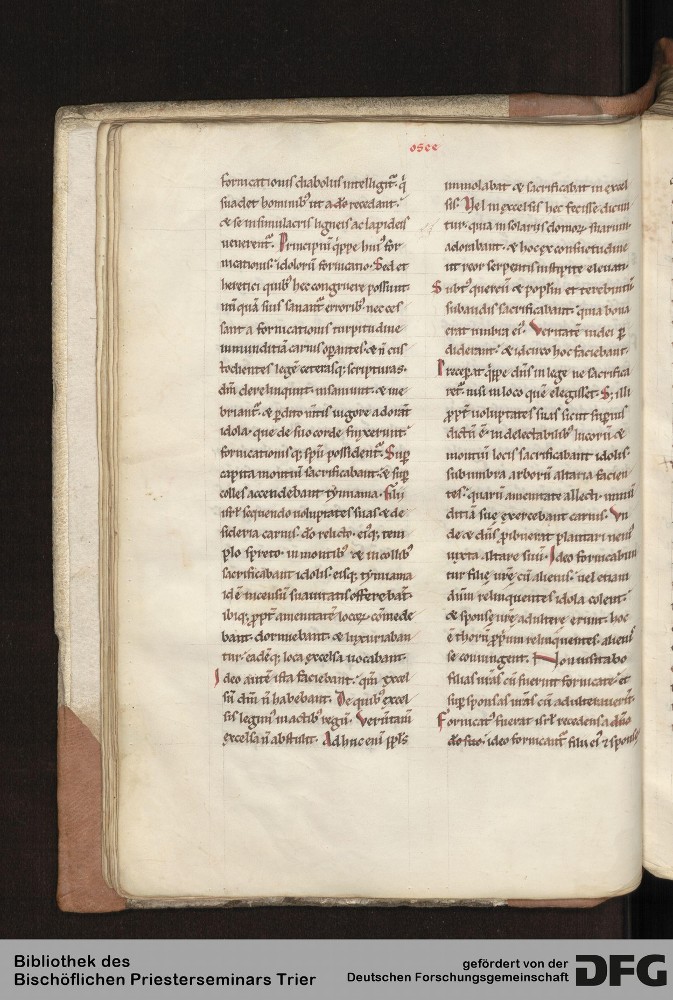 osee
fornicationis diabolus intelligit᷑. q̇
suadet hominib; ut a dō recedant.
& se in simulacris ligneis ac lapideis
uenerent᷑. Principiū q̇ppe hui᷒ for
nicationis. idoloꝝ fornicatio. Sed et
heretici quib᷒ hec congruere possunt
sana fornicationis turpitudine
inmunditiā carnis oꝑantes. & n̄ cus
todientes legē ceterasq; scripturas.
dm̄ derelinquunt. insaniunt. & ine
briant᷑. & ꝑdito mentis uigore adorāt
idola. que de suo corde finxerunt.
fornicationisq; spū possident᷑. Suꝑ
capita montiū sacrificabant. & suꝑ
colles accendebant tymiama. filii
isrl̄ sequendo uoluptates suas. & de
sideria carnis. dō relicto. eiq; tem
plo spreto. in montib᷒ & in collib᷒
sacrificabant idolis. eisq; tymiama
id ē incensū suauitatis offerebāt.
ibiq; ꝓpt᷑ amenitatē locoꝝ comede
bant. dormiebant. & luxuriaban
tur. eadēq; loca excelsa uocabant.
Ideo autē ista faciebant. qm̄ excel
sū dm̄ n̄ habebant. De quib᷒ excel
sis legim᷒ in actib᷒ regū. Veruntam̄
excelsa n̄ abstulit. Adhuc enī ppl̄s
immolabat & sacrificabat in excel
sis. Vel in excelsis hec fecisse dicun
tur. quia in solariis domoꝝ suarum
adorabant. & hoc ex consuetudine
ut reor serpentis in stipite eleuati.
Subt᷒ quercū & populū et terebintū
subaudis sacrificabant. quia bona
erat umbra ei᷒. Veritatē iudei ꝑ
diderant. & idcirco hoc faciebant.
Preceperat q̇ppe dn̄s in lege ne sacrifica
ret᷑. nisi in loco quē elegisset. S; illi
ꝓpt᷑ uoluptates suas sicut supius
dictū ē. in delectabilib᷒ lucorū &
montiū locis sacrificabant idolis.
sub umbra arborū altaria facien
tes. quarū amenitate allecti. inmū
ditiā sue exercebant carnis. Vn
de & dn̄s ꝓhibuerat plantari nem᷒
iuxta altare suū. Ideo fornicabun
tur filie ur̄e cū alienis. uel etiam
dm̄ relinquentes idola colent.
& sponse ur̄e adultere erunt. hoc
ē thorū ꝓprium relinquentes. alienis
se coniungent. Non uisitabo
filias ur̄as cū fuerint fornicate. et
suꝑ sponsas ur̄as cū adulterauerint.
Fornicat᷒ fuerat isrl̄ recedens a dn̄o
dō suo. ideo fornicant᷑ filii ei᷒ & sponse
Bibliothek des
Bischöflichen Priesterseminars Trier
gefördert von der
Deutschen Forschungsgemeinschaft
DFG